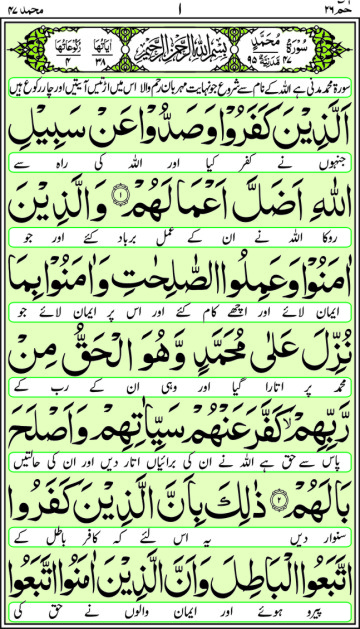 حٰمٓ ٢٦ ١ محمد ٤٧
سُوْرَةُ مُحَمَّدٍ مَدَنِيَّةٌ ٤٧ ٩٥ بِسْمِ اللّٰهِ الرَّحْمٰنِ الرَّحِيْمِ اٰيَاتُهَا ٣٨ رُكُوْعَاتُهَا ٤
سورۃ محمد مدنی ہے اللہ کے نام سے شروع جو نہایت مہربان رحم والا اس میں اڑتیس آیتیں اور چار رکوع ہیں
اَلَّذِيْنَ كَفَرُوْا وَصَدُّوْا عَنْ سَبِيْلِ
جنہوں نے کفر کیا اور اللہ کی راہ سے
اللّٰهِ اَضَلَّ اَعْمَالَهُمْ ۝١ وَالَّذِيْنَ
روکا اللہ نے ان کے عمل برباد کئے اور جو
اٰمَنُوْا وَعَمِلُوا الصّٰلِحٰتِ وَاٰمَنُوْا بِمَا
ایمان لائے اور اچھے کام کئے اور اس پر ایمان لائے جو
نُزِّلَ عَلٰى مُحَمَّدٍ وَّهُوَ الْحَقُّ مِنْ
محمد پر اتارا گیا اور وہی ان کے رب کے
رَّبِّهِمْ ۙ كَفَّرَ عَنْهُمْ سَيِّاٰتِهِمْ وَاَصْلَحَ
پاس سے حق ہے اللہ نے ان کی برائیاں اتار دیں اور ان کی حالتیں
بَالَهُمْ ۝٢ ذٰلِكَ بِاَنَّ الَّذِيْنَ كَفَرُوا
سنوار دیں یہ اس لئے کہ کافر باطل کے
اتَّبَعُوا الْبَاطِلَ وَاَنَّ الَّذِيْنَ اٰمَنُوا اتَّبَعُوا
پیرو ہوئے اور ایمان والوں نے حق کی